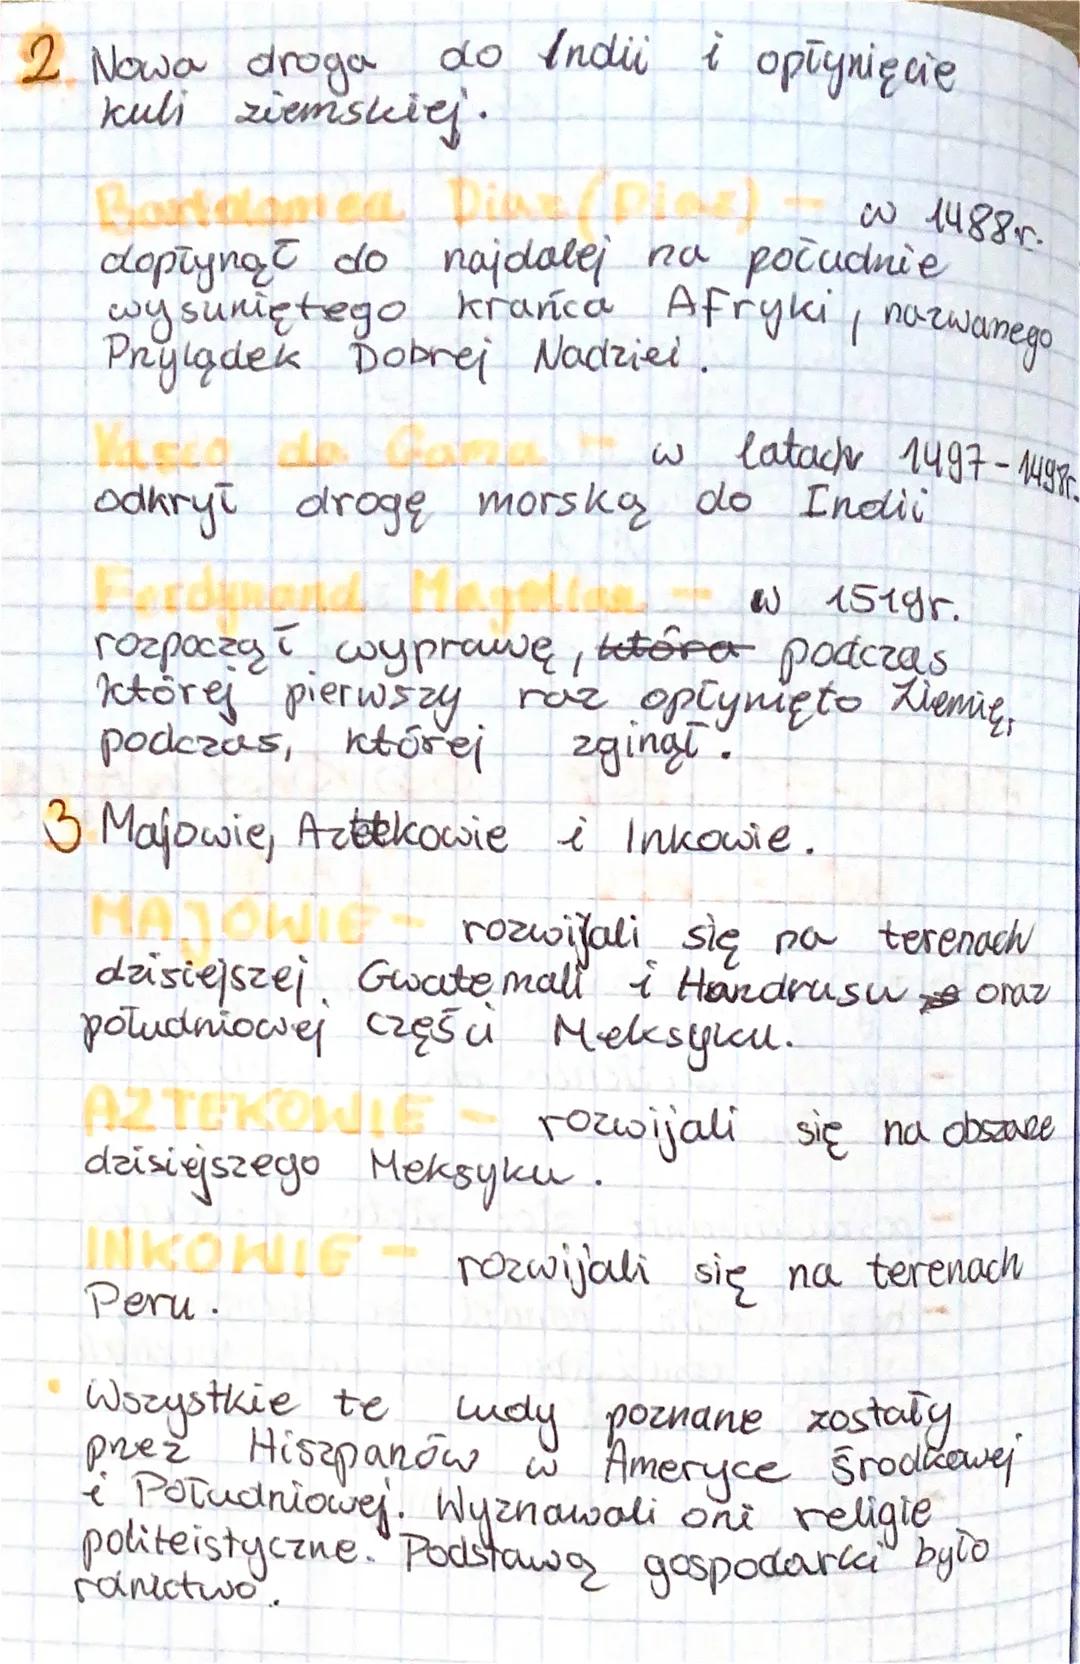 2. Nowa droga do Indii i opłynięcie
kuli ziemskiej.
Bartolomeu Diaz (Dias) - w 1488r.
dopłynął do najdalej na południe
wysuniętego krańca Afryki, nazwanego
Przylądek Dobrej Nadziei.
Vasco da Gama - w latach 1497-1498r.
odkrył drogę morską do Indii
Ferdynand Magellan - w 1519r.
rozpoczął wyprawę, która podczas
której pierwszy raz opłynięto Ziemię,
podczas, której zginął.
3 Majowie, Aztekowie i Inkowie.
MAJOWIE - rozwijali się na terenach
dzisiejszej Gwatemali i Hondurasu oraz
południowej części Meksyku.
AZTEKOWIE - rozwijali się na obszarze
dzisiejszego Meksyku.
INKOWIE - rozwijali się na terenach
Peru.
• Wszystkie te ludy poznane zostały
przez Hiszpanów w Ameryce Środkowej
i Południowej. Wyznawali oni religie
politeistyczne. Podstawą gospodarki było
rolnictwo.